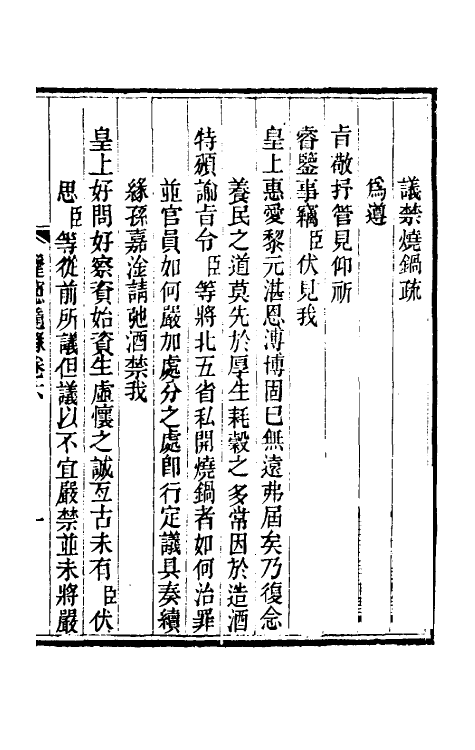 議禁燒鍋疏
為遵
旨敬抒管見仰祈
睿鑒事竊臣伏見我
皇上惠愛黎元湛恩溥博固已無遠弗屆矣乃復念
養民之道莫先於厚生耗穀之多常因於造酒
特頒諭旨令臣等將北五省私開燒鍋者如何治罪
並官員如何嚴加處分之處即行定議具奏續
緣孫嘉淦請弛酒禁我
皇上好問好察資始資生虛懷之誠亙古未有臣伏
思臣等從前所議但議以不宜嚴禁並未將嚴
卷六
一